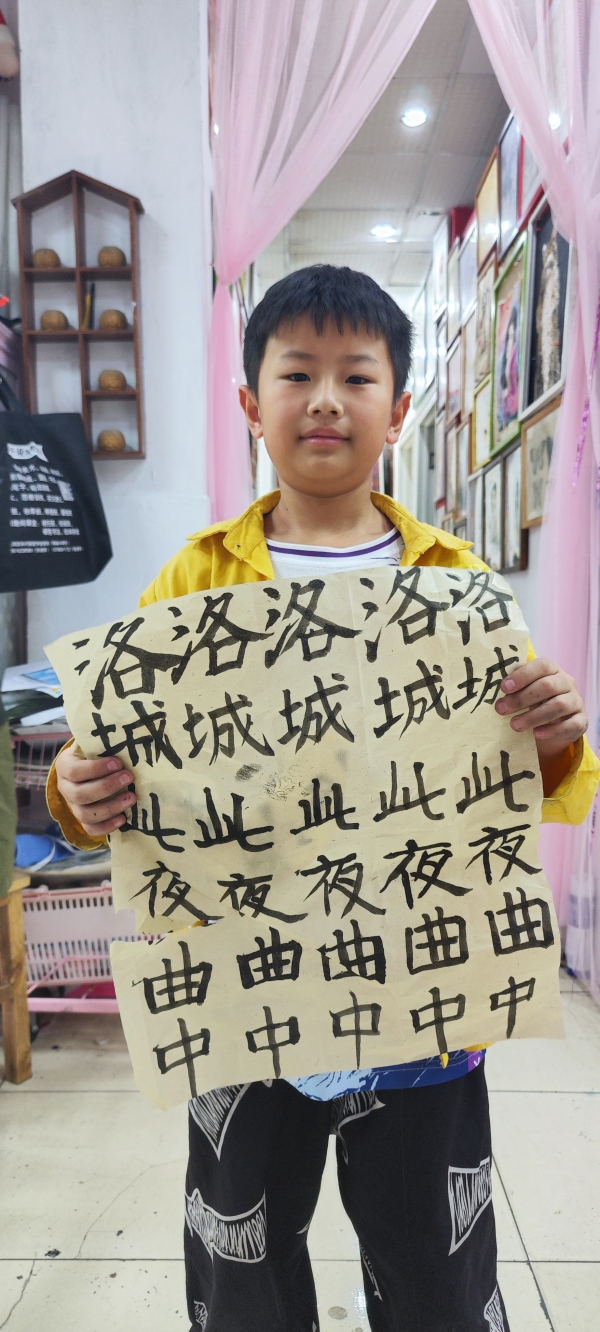 洛洛洛洛洛
城城城城城
此此此此此
夜夜夜夜夜
曲曲曲曲曲
中中中中中